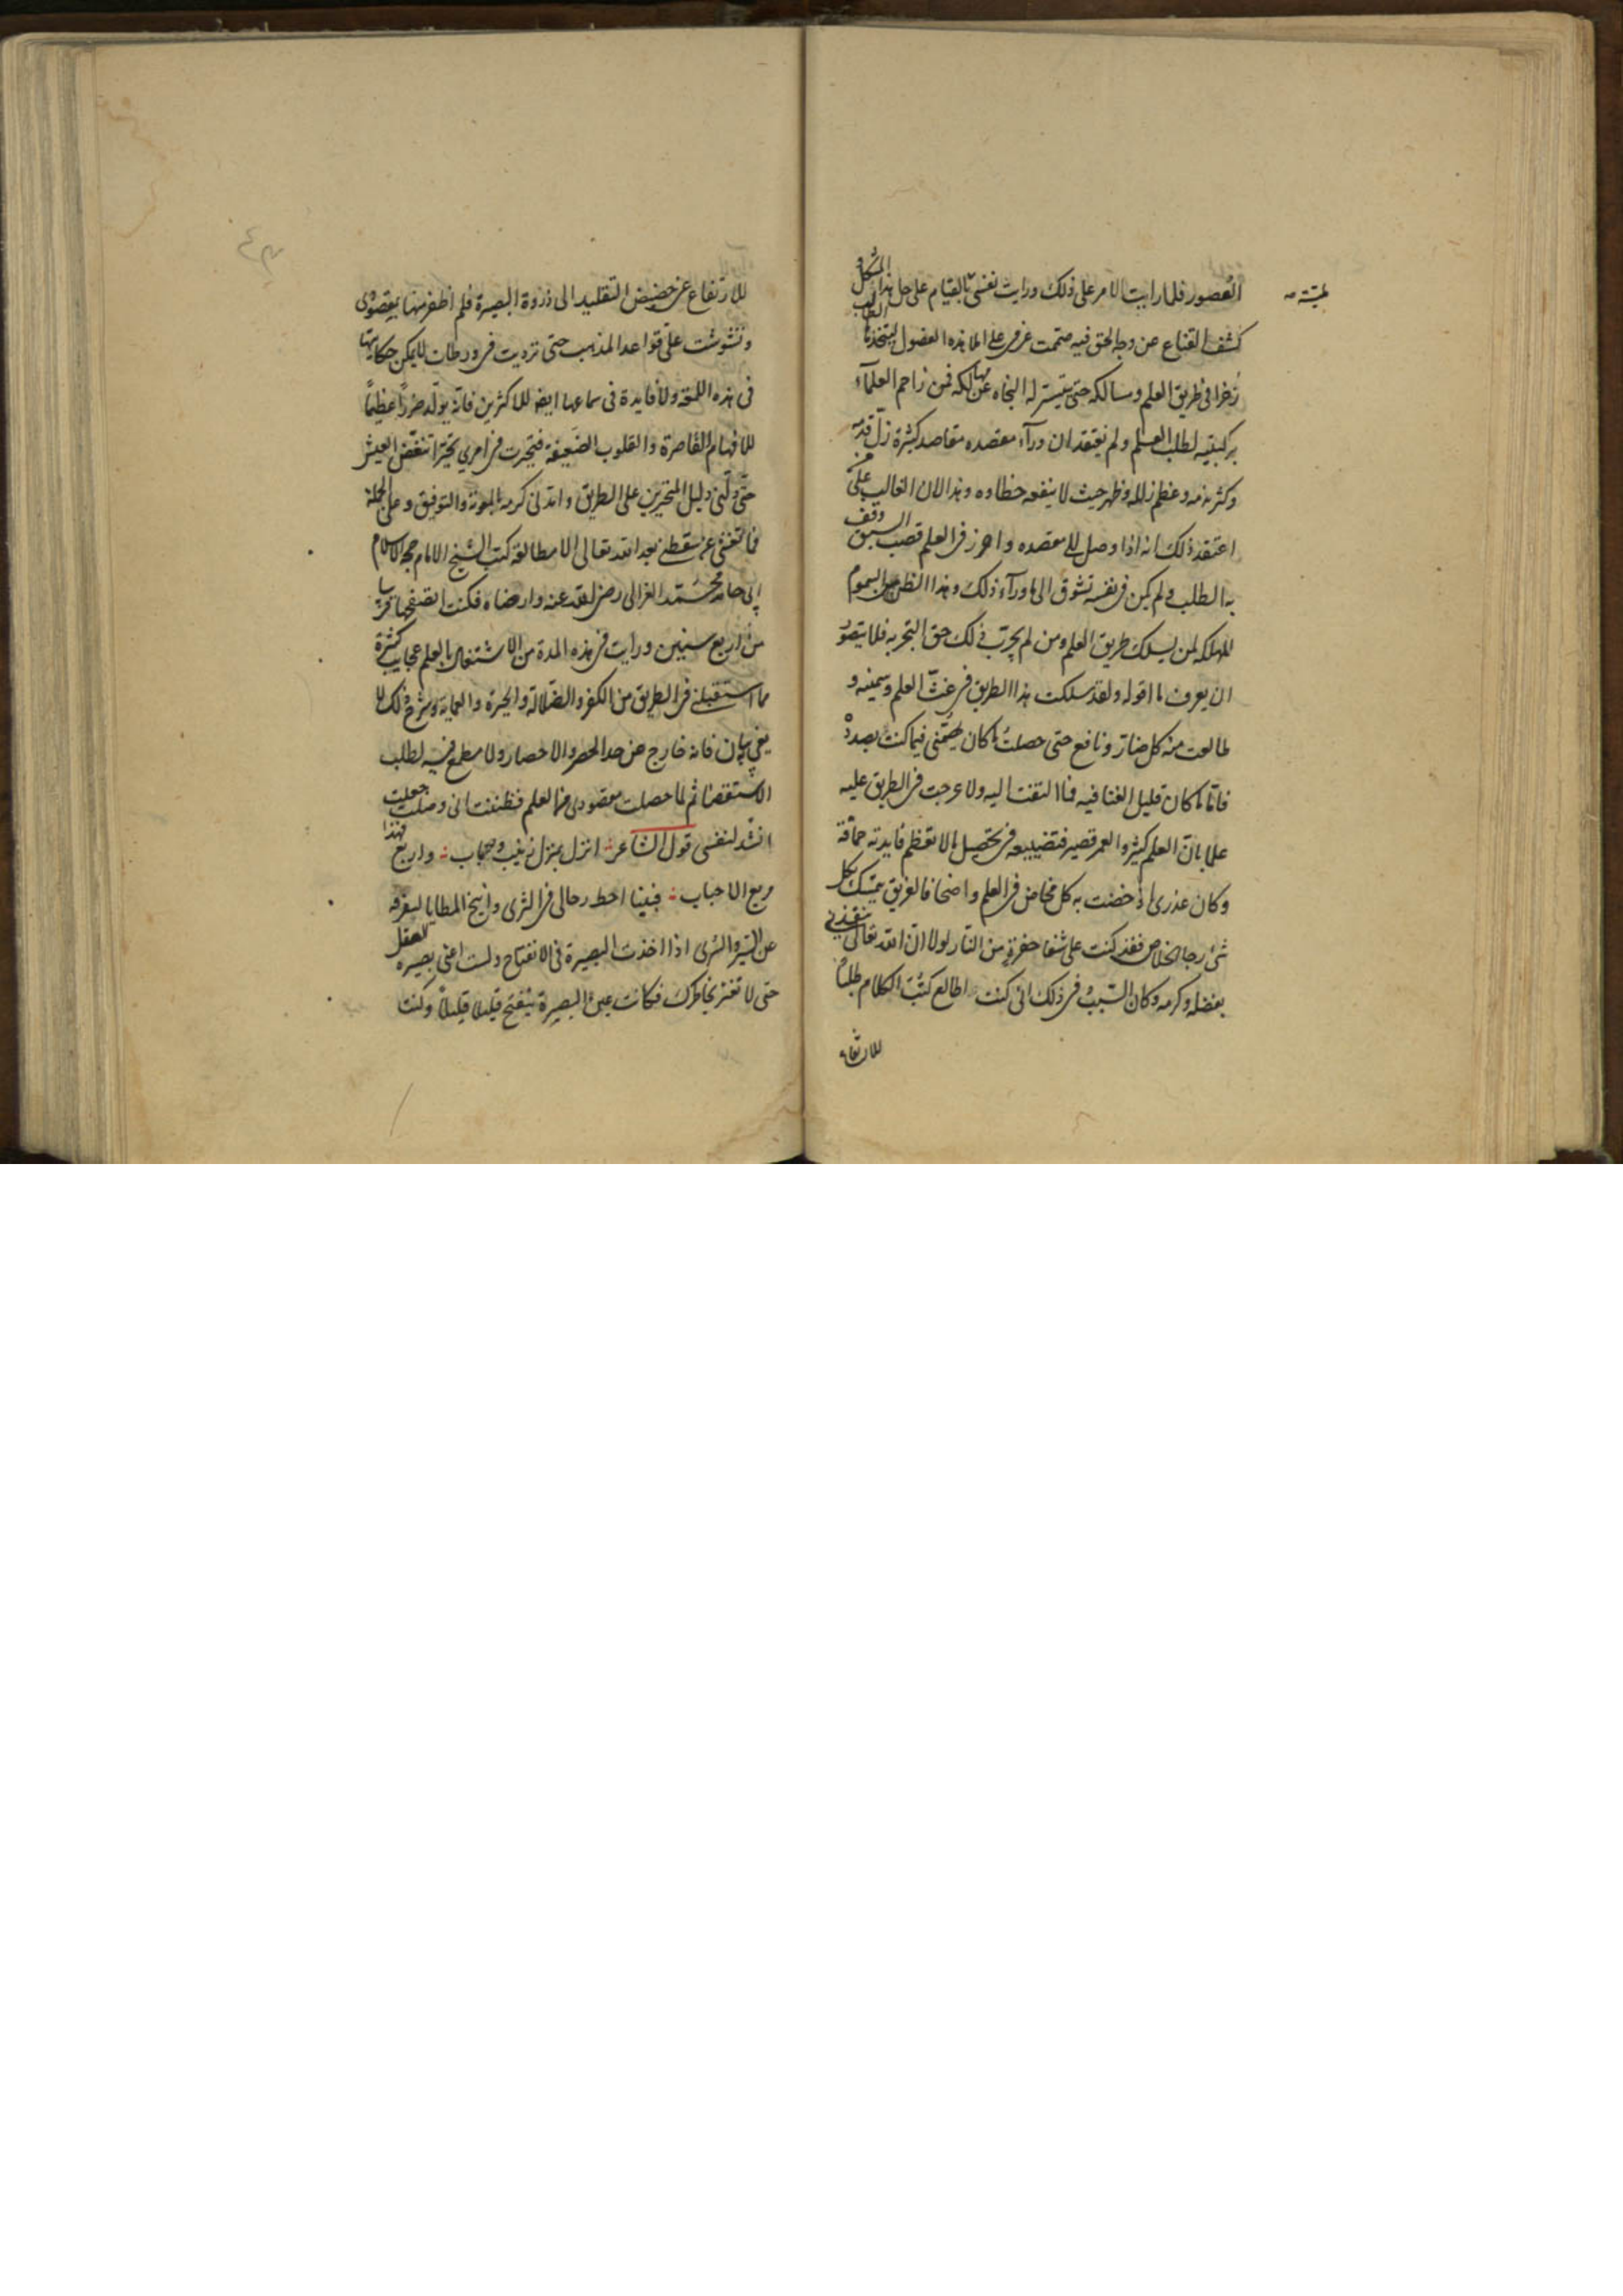 العصور فلما رايت الامر على ذلك ورايت نفسى بالقيام على حل هذا المشكل و
كشف القناع عن وجه الحق فيه صممت عزمى على املا هذه الفصول ليتخذها الطالب
ذخرا فى طريق العلم ومسالكه حتى يتيسر له النجاه عن مهالكه فمن زاحم العلمآء
بركبتيه لطلب العلم ولم يعتقد ان ورآء مقصده مقاصد كثيرة زل قدمه
وكثر ندمه وعظم زلله وظهر حيث لا ينفعه خطاوه وهذا لان الغالب على من
اعتقد ذلك انه اذا وصل الى مقصده واحرز فى العلم قصب السبق وقف
به الطلب ولم يكن فى نفسه تشوق الى ما ورآء ذلك وهذا الظن من السموم
المهلكه لمن يسلك طريق العلم ومن لم يجرب ذلك حق التجربه فلا يتصور
ان يعرف ما اقوله ولقد سلكت هذا الطريق فى غث العلم وسمينه و
طالعت منه كل ضار ونافع حتى حصلت ما كان يهمنى فيما كنت بصدده
فاما ما كان قليل الغنا فيه فما التفت اليه ولا عرجت فى الطريق عليه
علما بان العلم كثير والعمر قصير فتضييعه فى تحصيل ما لا تعظم فايدته حماقة
وكان عذرى اذ خضت به كل مخاض فى العلم واضحا فالغريق يتمسك بكل
شئ رجا الخلاص فقد كنت على شفا حفرة من النار لولا ان الله تعالى ينقذنى
بفضله وكرمه وكان السبب فى ذلك انى كنت اطالع كتب الكلام طلبا
للارتفاع
للارتفاع عن حضيض التقليد الى ذروة البصيرة فلم اظفر منها بمقصودى
وتشوشت على قواعد المذهب حتى ترديت فى ورطات لا يمكن حكايتها
فى هذه اللمعة ولا فايدة فى سماعها ايضا للاكثرين فانه يولد ضررا عظيما
للافهام القاصرة والقلوب الضعيفة فتحيرت فى امرى تحيرا تنغص العيش
حتى دلنى دليل المتحيرين على الطريق وامدنى كرمه بالمعونة والتوفيق وعلى الجملة
فما نعشنى عن سقطتى بعد الله تعالى الا مطالعة كتب الشيخ الامام حجة الاسلام
ابى حامد محمد الغزالى رضى الله عنه وارضاه فكنت اتصفحها قريبا
من اربع سنين ورايت فى هذه المدة من الاشتغال بالعلم عجايب كثيرة
مما استقبلنى فى الطريق من الكفر والضلالة والحيرة والعماية وشرح ذلك لا
يفى بيان فانه خارج عن حد الحصر والاحصار ولا مطمع فيه لطلب
الاستقصا ثم لما حصلت مقصودى من العلم فظننت انى وصلت جعلت
انشد لنفسى قول الشاعر انزل بمنزل زينب ورباب واربع فهذا
مربع الاحباب فبينا احط رحالى فى الثرى وانيخ المطايا
عن السير والسرى اذا اخذت البصيرة فى الانفتاح ولست اعنى بصيرة العقل
حتى لا تغتر بخاطرك فكانت عين البصيرة ينفتح قليلا قليلا وكنت